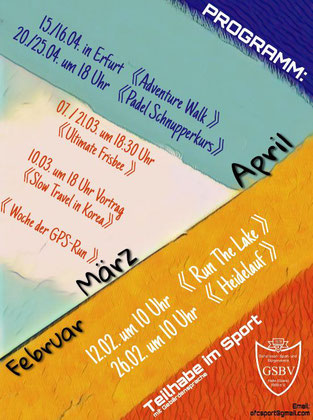 PROGRAMM:
15/16.04. in Erfurt 《Adventure Walk 》
20/25.04. um 18 Uhr 《Padel Schnupperkurs》
April
07. / 21.03. um 18:30 Uhr
《Ultimate Frisbee 》
10.03. um 18 Uhr Vortrag
《Slow Travel in Korea》
《 Woche der GPS-Run 》
März
12.02. um 10 Uhr 《 Run The Lake 》
26.02. um 10 Uhr 《 Heidelauf 》
Februar
Teilhabe im Sport
mit Gebärdensprache
GSBV
Email:
ofcsport@gmail.com